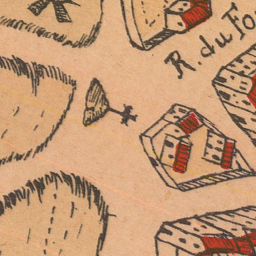 R. du Fo